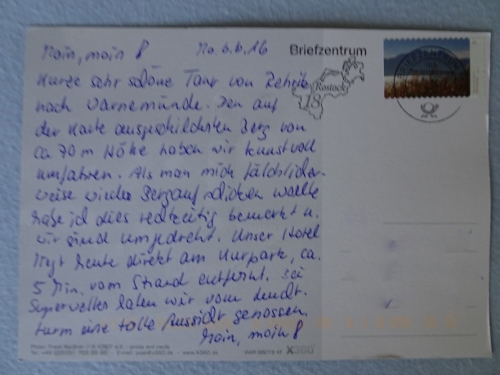 Moin, moin! Mo. 6.6.16
Briefzentrum
Rostock
18
Kurze sehr schöne Tour von Rerik
nach Warnemünde. Den auf
der Karte ausgeschilderten Berg von
ca 70 m Höhe haben wir kunstvoll
umfahren. Als man mich fälschlicher-
weise wieder Bergauf schicken wollte
habe ich dies rechtzeitig bemerkt u.
wir sind umgedreht. Unser Hotel
liegt heute direkt am Kurpark, ca.
5 Min. vom Strand entfernt. Bei
Superwetter haben wir vom Leucht-
turm eine tolle Aussicht genossen.
Moin, moin!